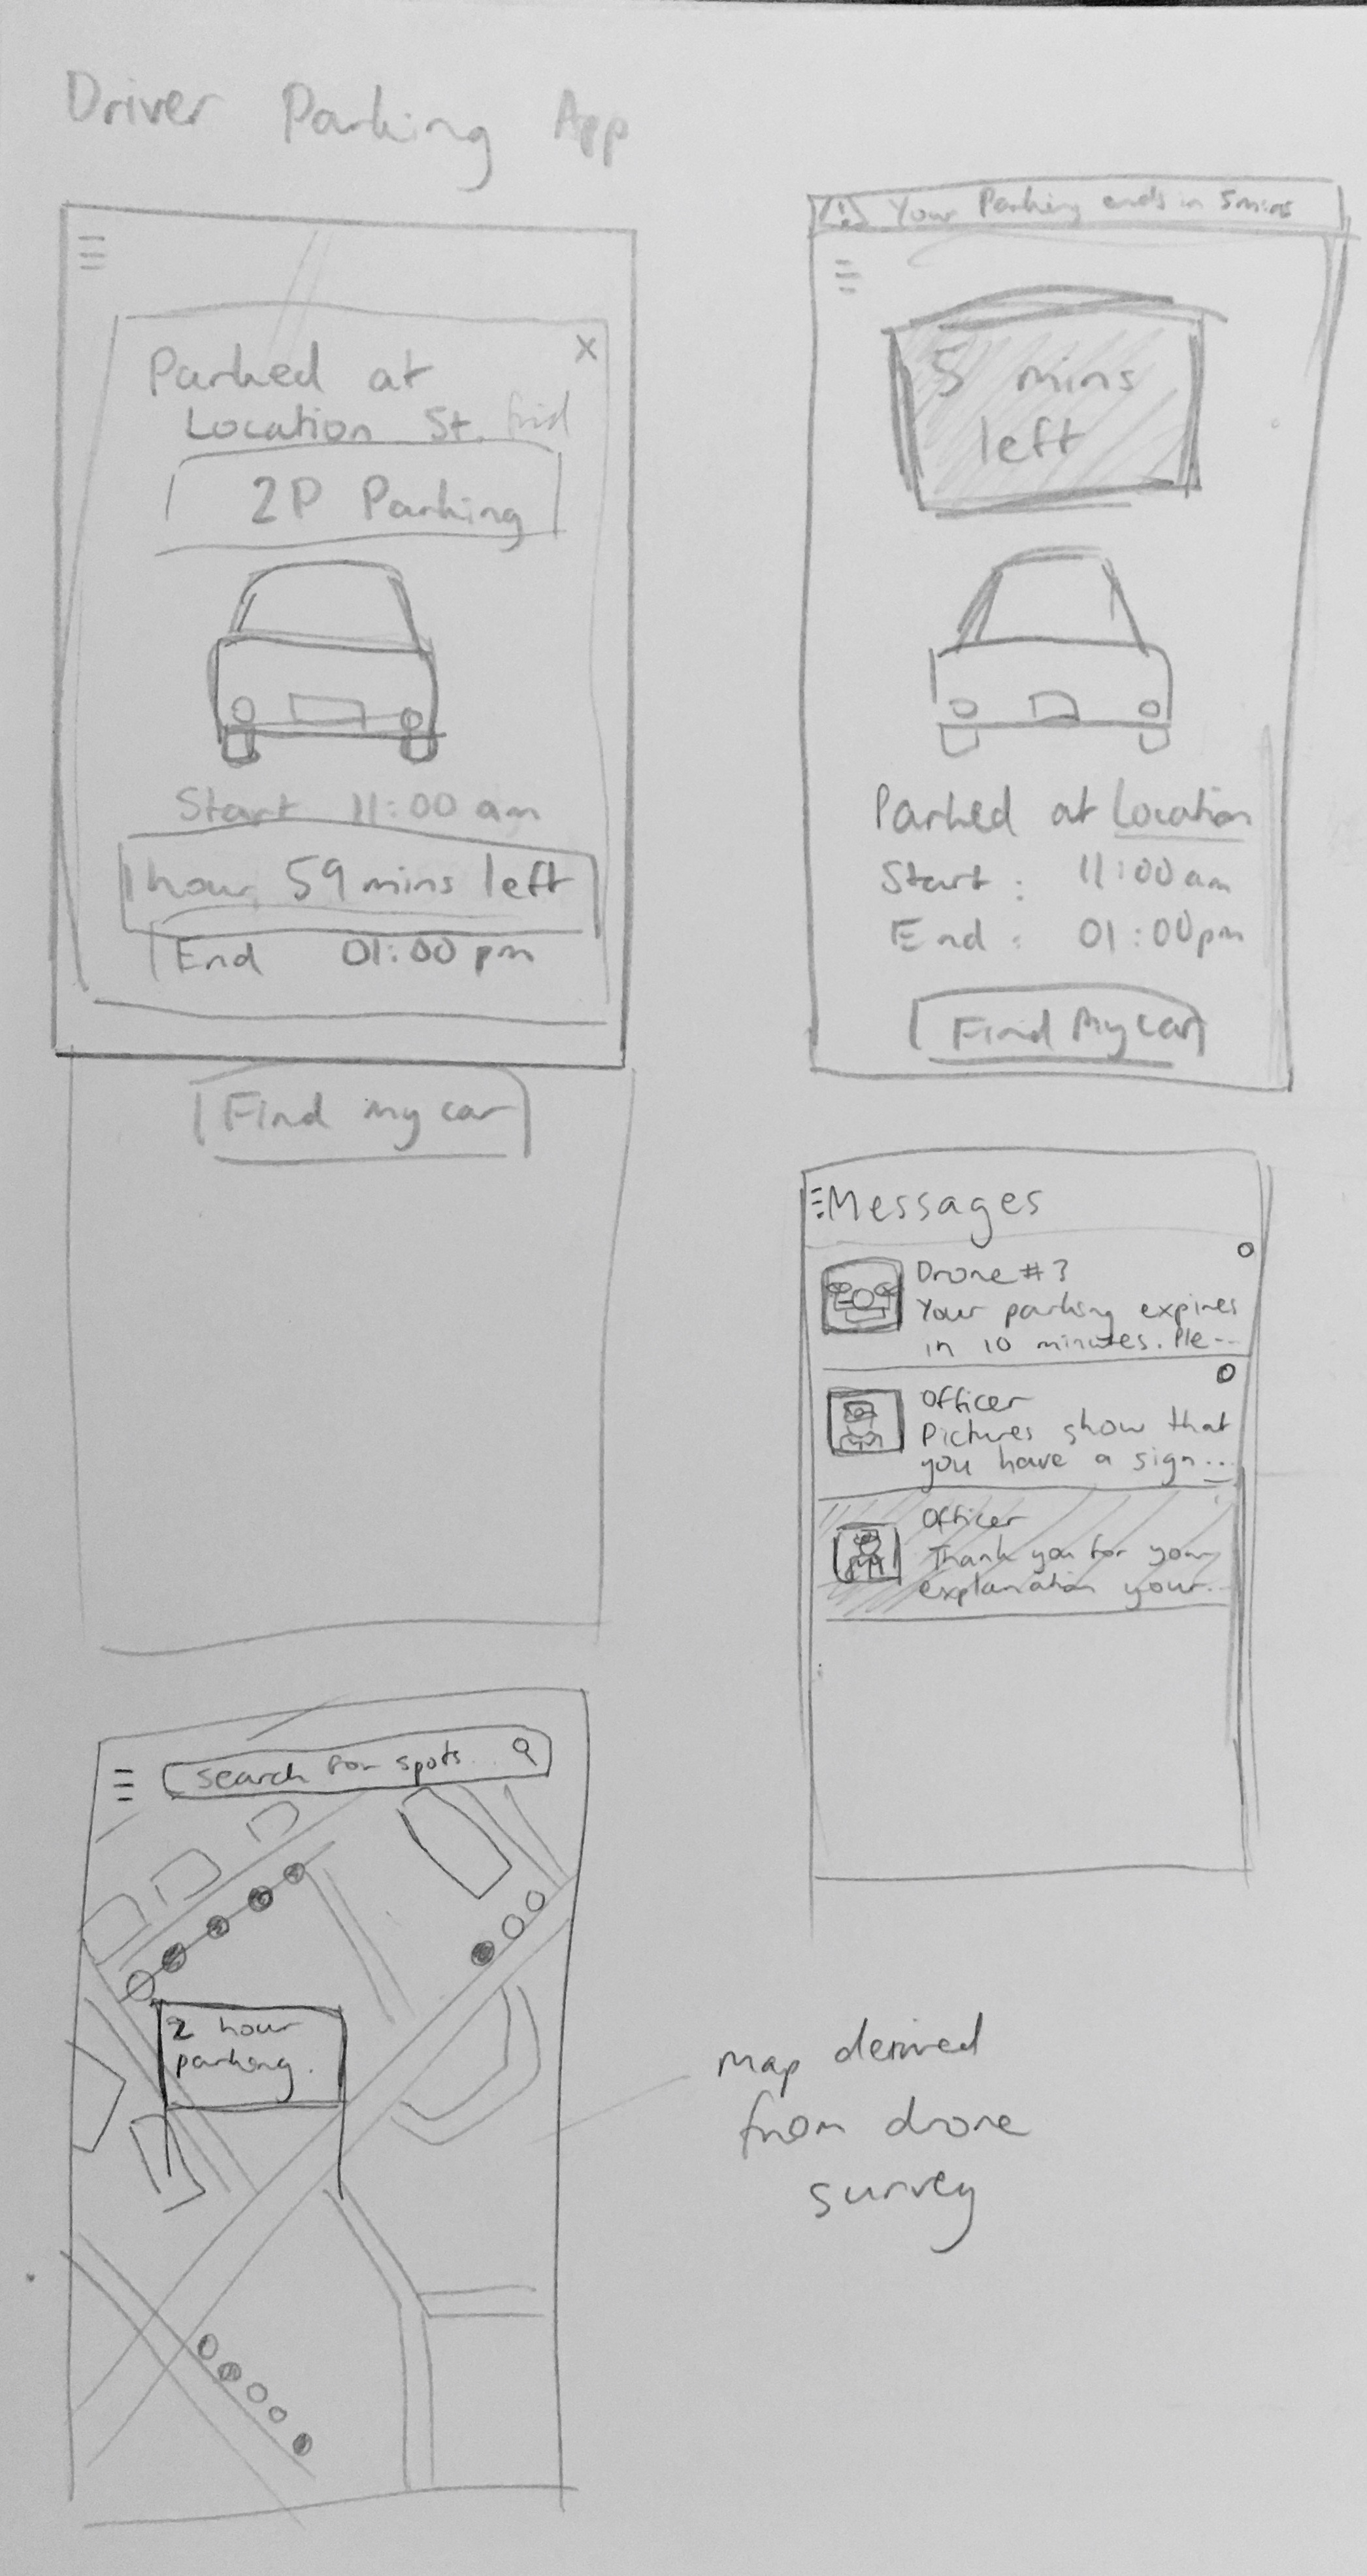 Driver Parking App
x
Parked at
Location St.
2P Parking
Start 11:00 am
1 hour 59 mins left
End 01:00 pm
Find my car
! Your Parking ends in 5 mins
5 mins
left
Parked at Location
Start : 11:00 am
End : 01:00pm
Find My car
Messages
Drone #3
Your parking expires
in 10 minutes. Ple...
Officer
Pictures show that
you have a sign...
Officer
Thank you for your
explanation your...
search for spots...
2 hour
parking.
Map derived
from drone
survey